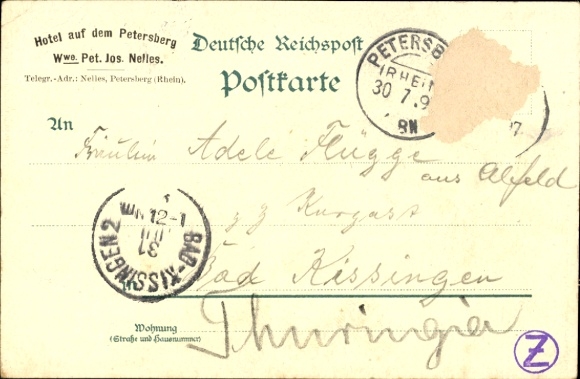 Hotel auf dem Petersberg
Wwe. Pet. Jos. Nelles.
Telegr.-Adr.: Nelles, Petersberg (Rhein).
Deutsche Reichspost
Postkarte
PETERSB
(RHEIN
30 7 9
7
BN
An
Fräulein Adele Flügge
aus Alfeld
z Z Kurgast
Bad Kissingen
Thuringia
BAD-KISSINGEN 2
12-1
31
Wohnung
(Straße und Hausnummer)
Z